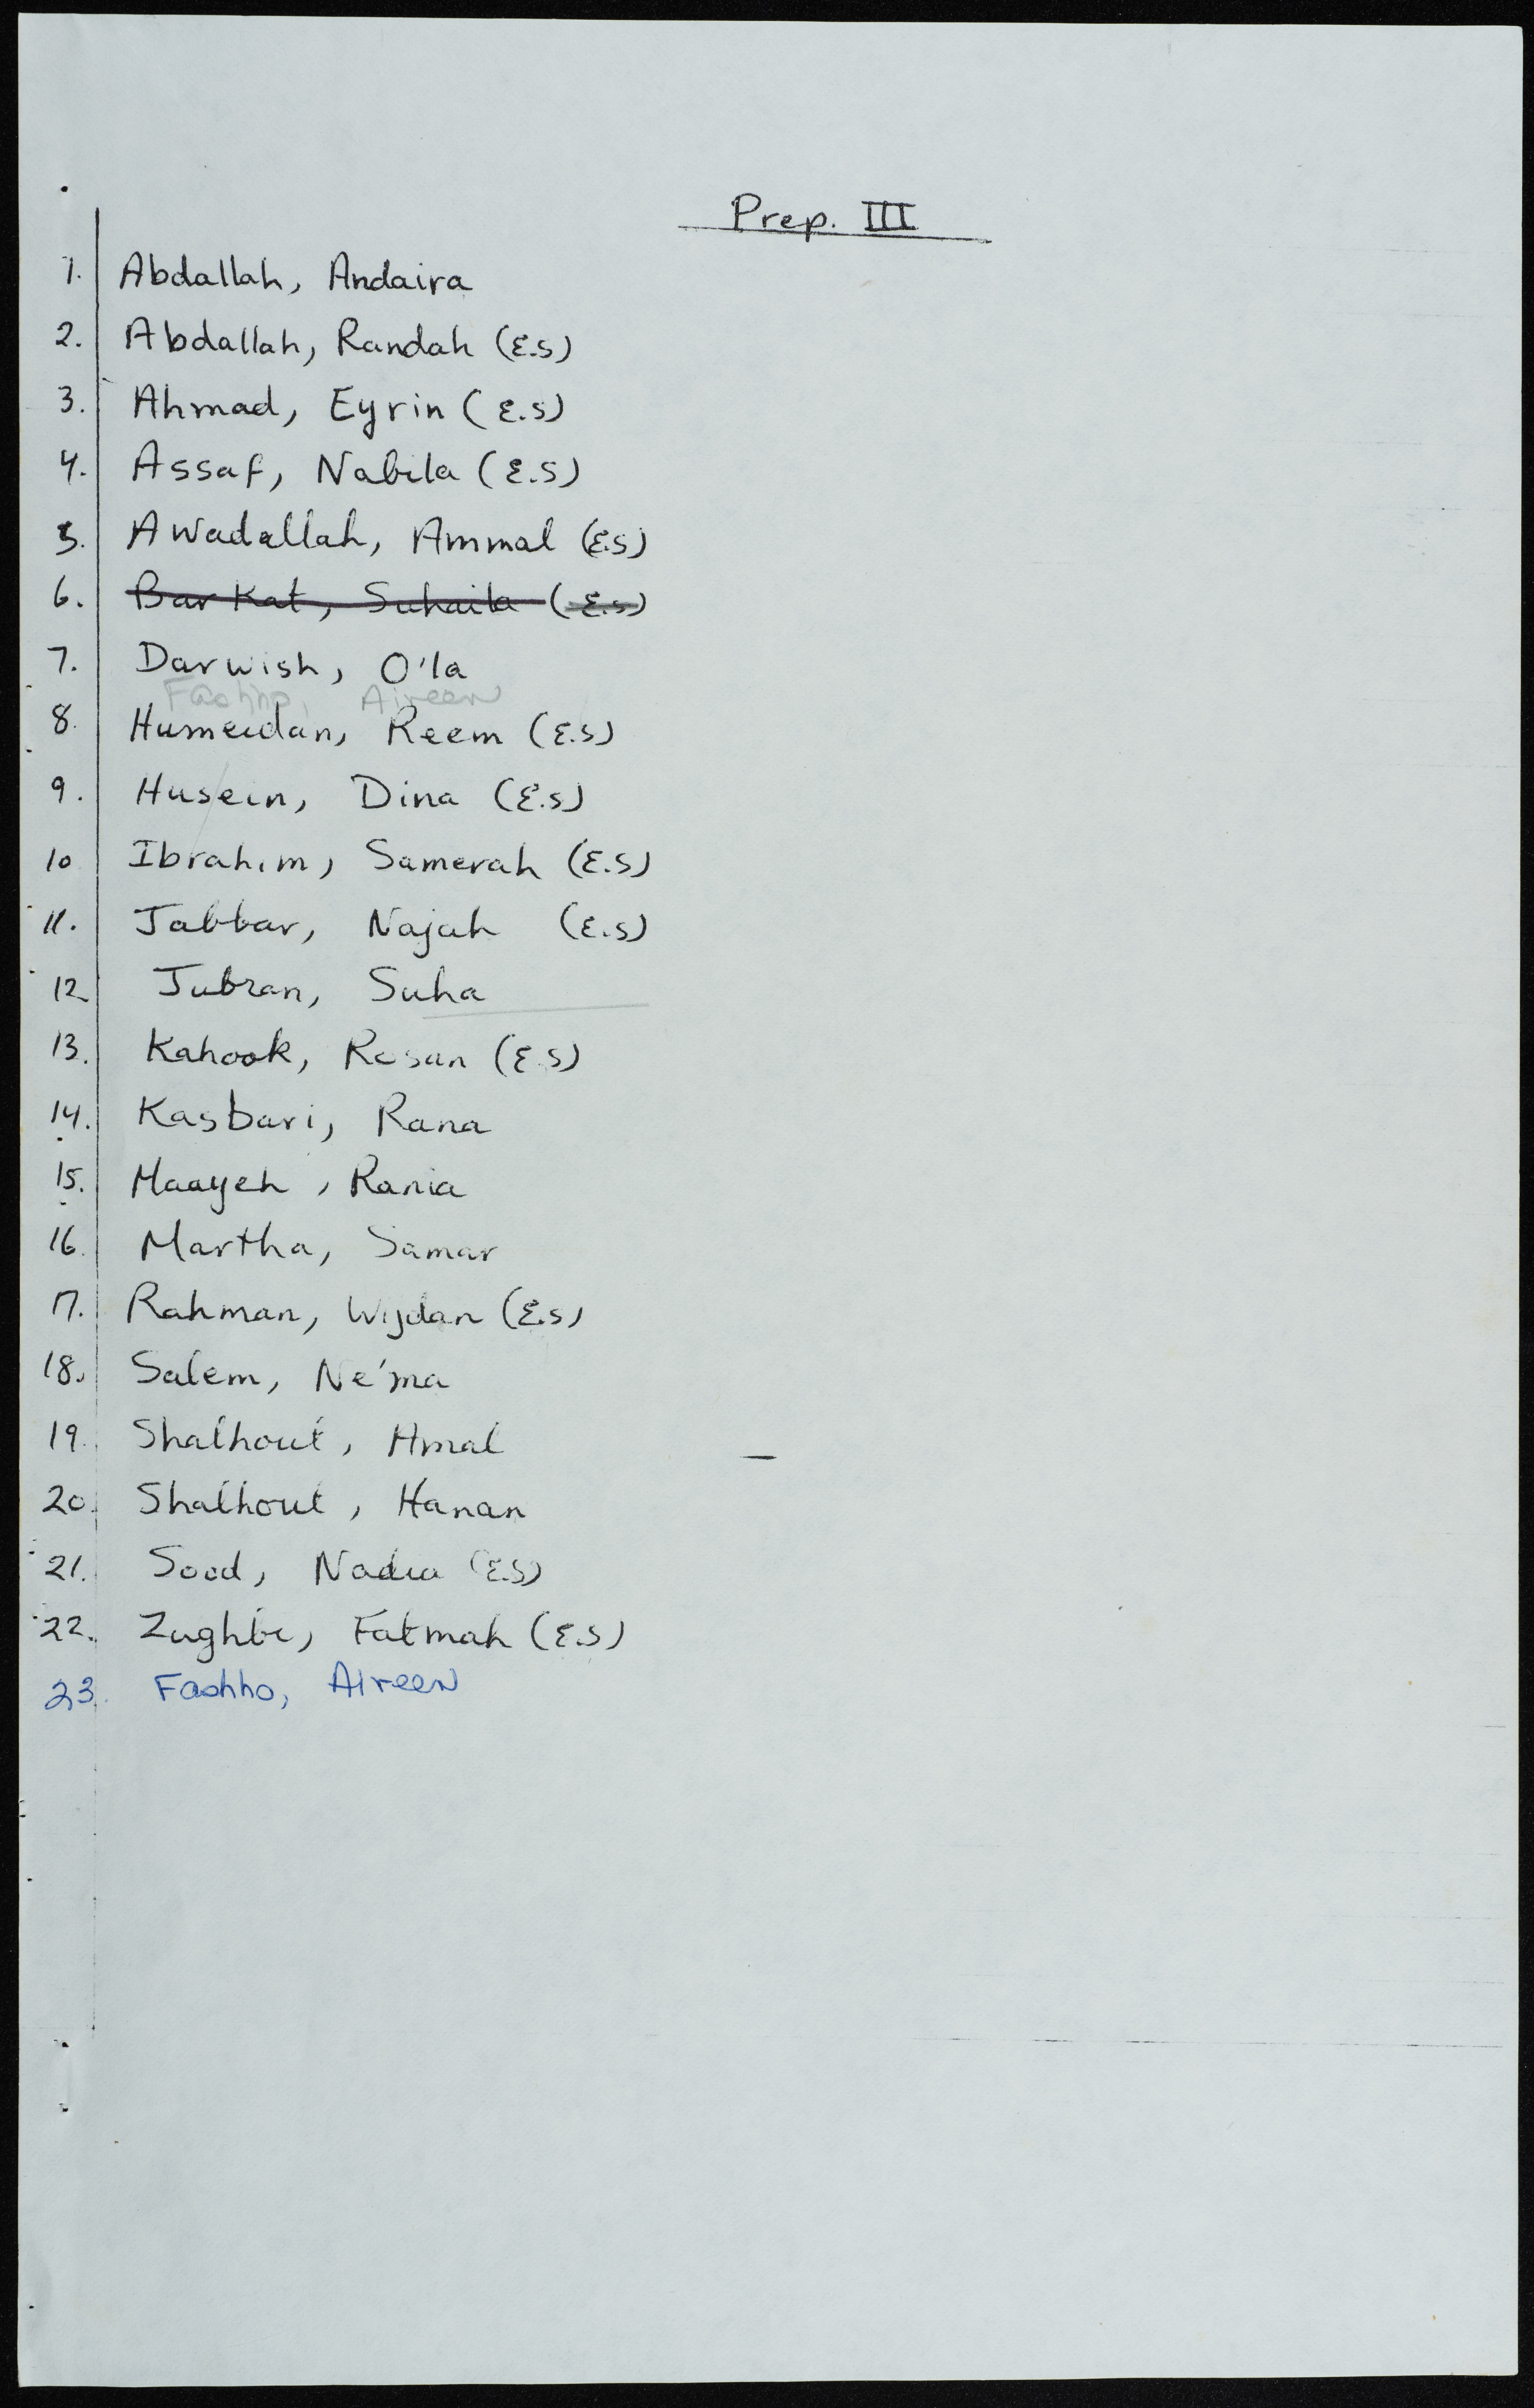 Prep. III
1. Abdallah, Andaira
2. Abdallah, Randah (E.S)
3. Ahmad, Eyrin (E.S)
4. Assaf, Nabila (E.S)
5. Awadallah, Ammal (E.S)
6. Barkat, Suhaila (E.S)
7. Darwish, O'la
Fashho, Aireen
8. Humeidan, Reem (E.S)
9. Husein, Dina (E.S)
10 Ibrahim, Samerah (E.S)
11. Jabbar, Najah (E.S)
12 Jubran, Suha
13. Kahook, Rosan (E.S)
14. Kasbari, Rana
15. Maayeh, Rania
16. Martha, Samar
17. Rahman, Wijdan (E.S)
18. Salem, Ne'ma
19. Shalhout, Amal
20. Shalhout, Hanan
21. Sood, Nadia (E.S)
22. Zughbi, Fatmah (E.S)
23. Fashho, Aireen